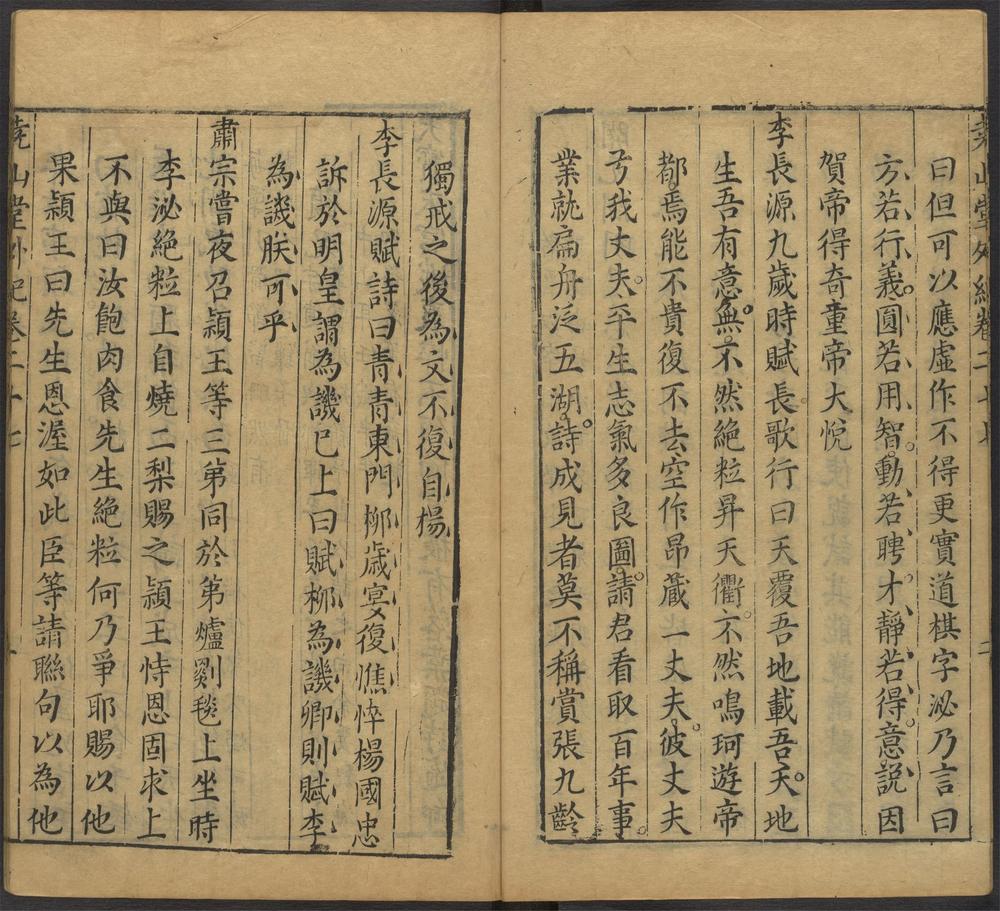 堯山堂外紀卷二十七
曰但可以應虛作不得更實道棋字泌乃言曰
方若行義圓若用智動若聘才靜若得意說因
賀帝得奇童帝大悅
李長源九歲時賦長歌行曰天覆吾地載吾天地
生吾有意無不然絕粒昇天衢不然鳴珂遊帝
都焉能不貴復不去空作昂藏一丈夫彼丈夫
兮我丈夫平生志氣多良圖請君看取百年事
業就扁舟泛五湖詩成見者莫不稱賞張九齡
獨戒之後為文不復自楊
李長源賦詩曰青青東門柳歲宴復憔悴楊國忠
訴於明皇謂為譏已上曰賦柳為譏卿則賦李
為譏朕可乎
肅宗嘗夜召穎王等三弟同於第爐剡毯上坐時
李泌絕粒上自燒二梨賜之穎王恃恩固求上
不與曰汝飽肉食先生絕粒何乃爭耶賜以他
果穎王曰先生恩渥如此臣等請聯句以為他
堯山堂外紀卷二十七